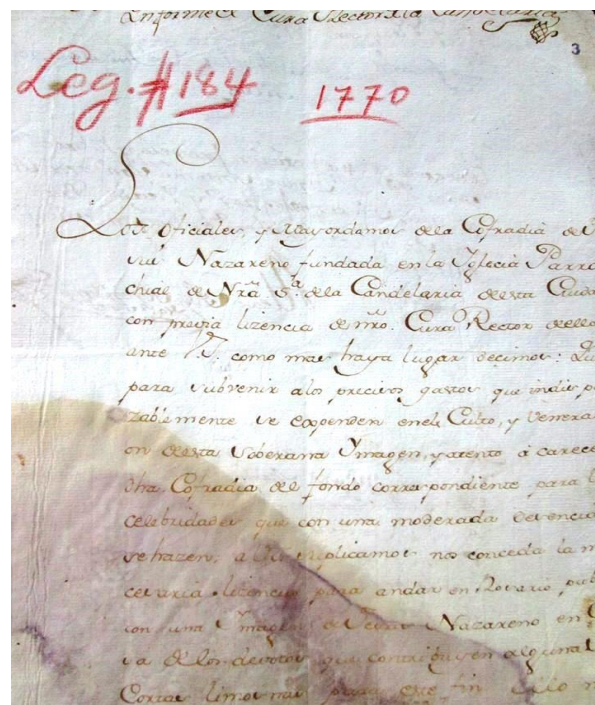 Informe el Cura Rector dla Candelaria
3
Leg. #184 1770
Los Oficiales, y Mayordomos dela Cofradia de
sus Nazareno fundada en la Iglecia Parro
chial de Nrã Sra dela Candelaria desta Ciuda
con previa lizencia de nro. Cura Rector
ante V.S. como mas haya lugar decimos: Qu
para subvenir alos precisos gastos que indis p
zablemente se expenden enel Culto, y Venera
on desta Soberana Ymagen, y atento â carece
dha Cofradia del fondo correspondiente para l
celebridades que con una moderada decencia
se hazen, a V.S. suplicamos nos conceda la n
cesaria licencia para andar en Rosario pub
con una Ymagen de Jesus Nazareno en
sa de los devotos que contribuyen alguna
Cortas limosnas para este fin